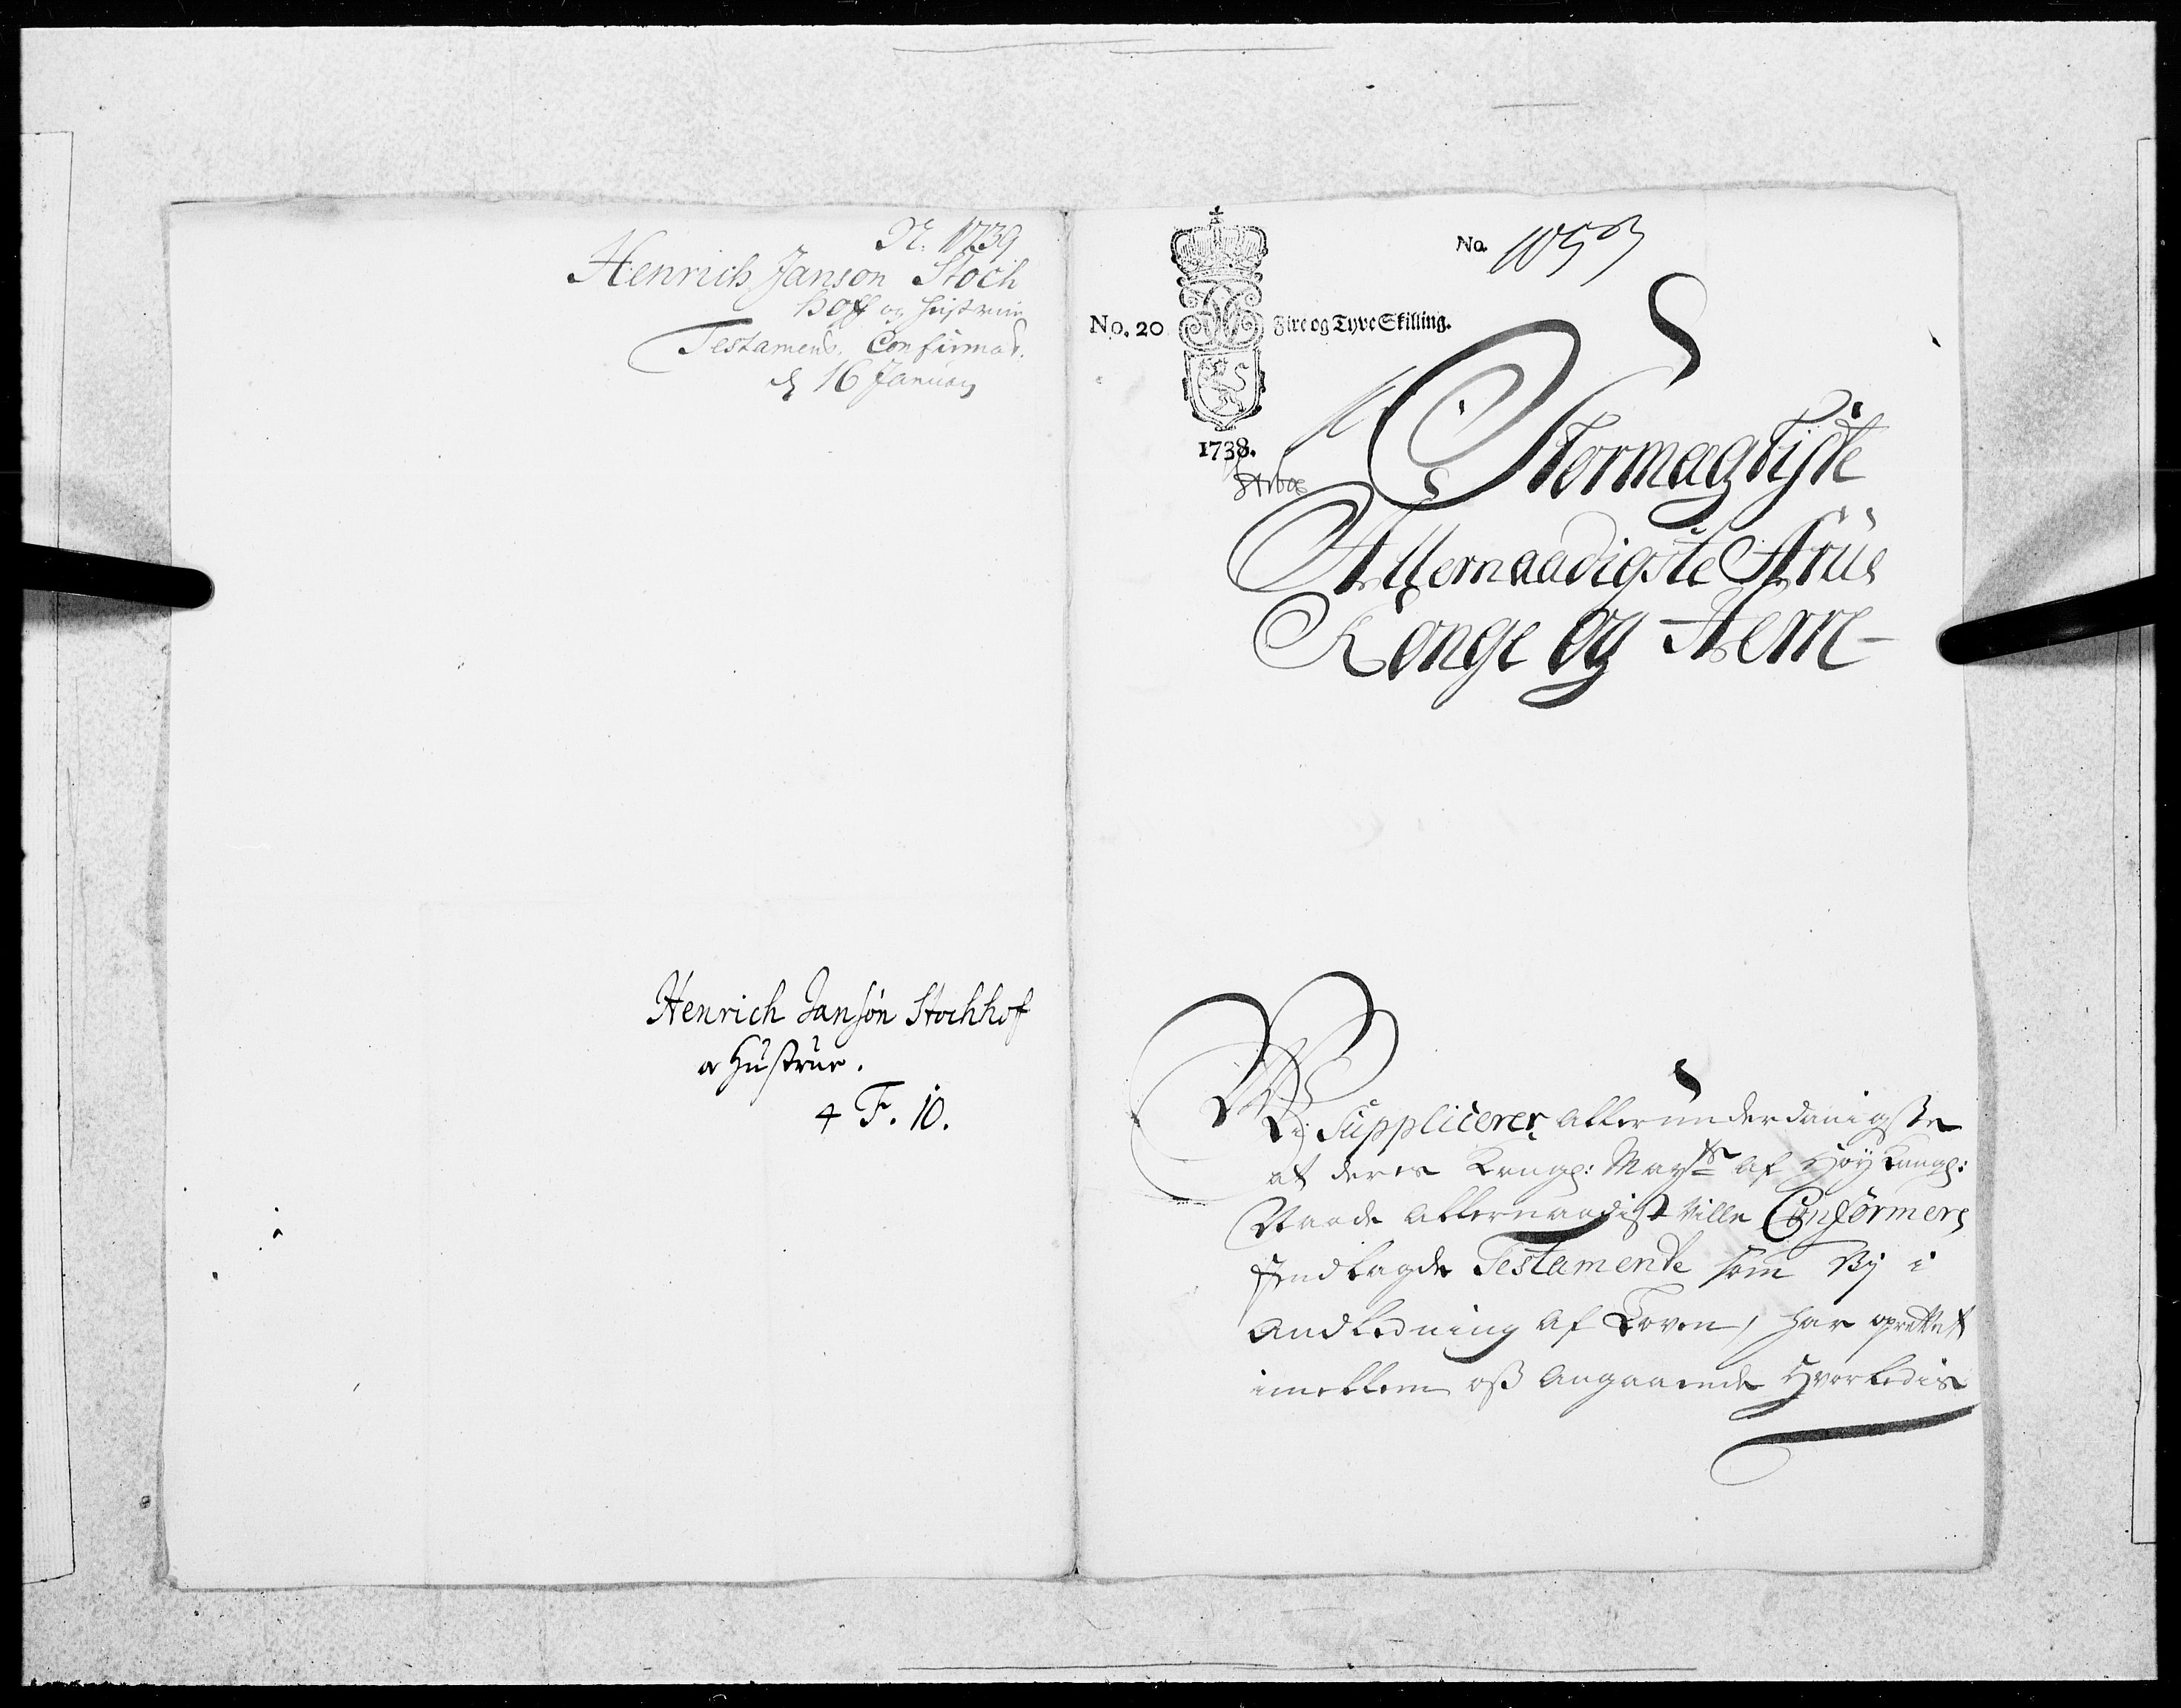 N. 1739
Henrich Janson Stoch
hoff og Hustrue
Testament. Confirmat.
d 16 January
Henrich Jansøn Stochhof
a Hustrue.
4 F. 10.
No. 20
Fire og Tyve Skilling.
No.
1738.
Stormægtigste
Allernaadigste Arfve
Konge og Herre
Vi Supplicerer allerunderdanigste
at deres Kongl: Mayts af Høy Kongl:
Naade allernaadigst ville Confirmere
Indlagde Testamente som Vy i
Andledning af Loven, har oprettet
imellem oss Angaaende Hvorledis